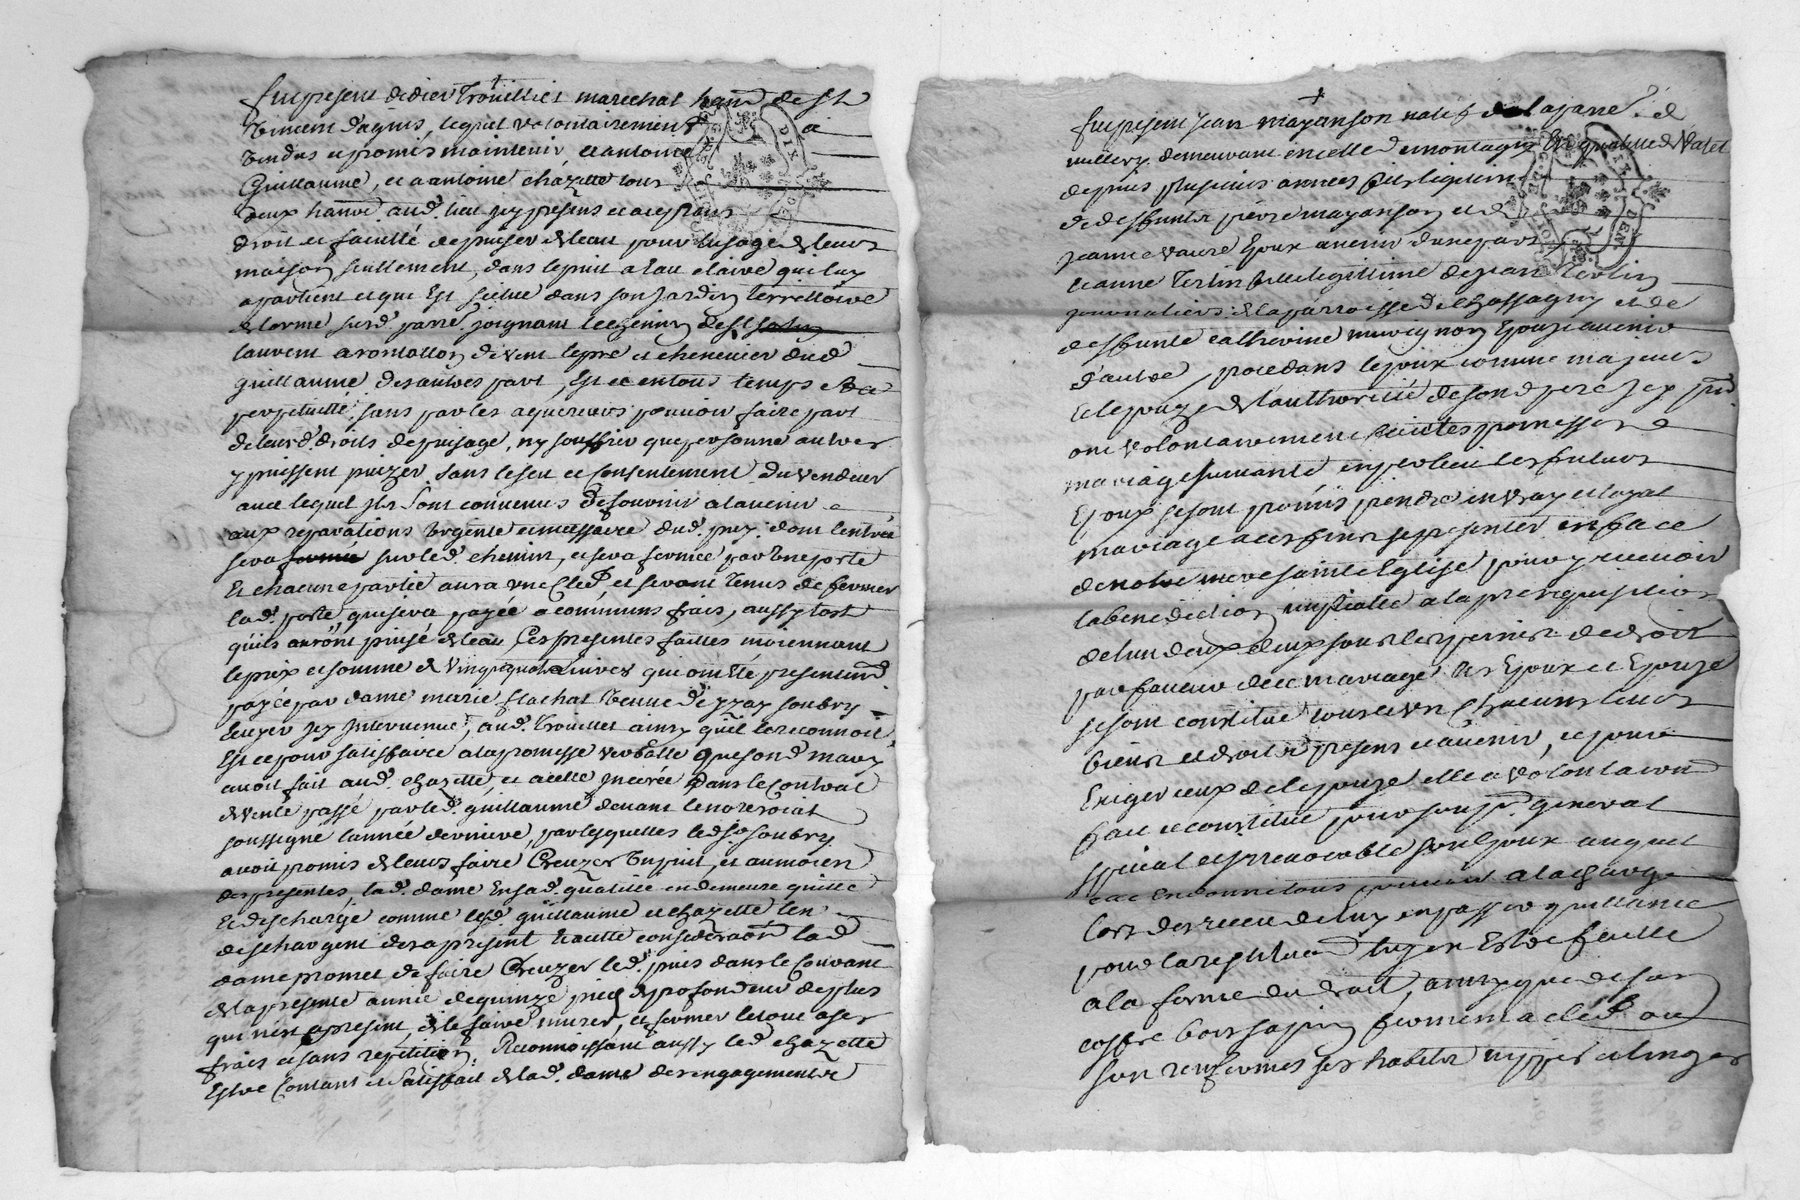 fut present didier Trouillet marechal hant de St
Vincent dagnis, lequel volontairement a
vendus et promis maintenir, a antoine
Guillaume, et a antoine chazette tous
deux hants aud. lieu icy presens et aceptans
droit et faculté de puiser de leau pour lusage de leurs
maison seullement, dans le puit a eau claire qui luy
apartient et qui Est situé dans son jardin
joignant le chemin de St
laurent a rontallon devent le pré et chenevier dud
guillaume desautres part, Est ce en tous temps et a
perpetuitté, sans par les aquereurs pouvoir faire part
de leurd. droits de puisage, ny souffrir que personne autres
y puissent puizer sans le seu et Consentement du vendeur
avec lequel ils Sont convenus de fournir a lavenir
aux reparations Urgente et necessaire dud. puy. dont lentrée
sera sur led. chemin, et sera fermée par Une porte
Et chacune partie aura une Clef, et seront Tenus de fermer
lad. porte, qui sera payée a communs frais, aussy tost
quils auront puisé de leau, Ces presentes faittes moiennant
le prix et somme de Vingt quatre livres qui ont Eté presentement
payée par dame marie flachat Veuve de yzay soubry
Ecuyer icy Intervenue, aud. Trouillet ainsy quil le reconnoit
Est ce pour satisfaire a la promesse verballe que sond mary
avoit fait aud. chazette, et a celle Inserée Dans le Contrat
de vente passé par led. guillaume devant le notre roial
soussigné lannée derniere, par lesquelles led. sr. soubry
avoit promis de leurs faire Creuzer Un puit, et au moien
des presentes, lad. dame En sad. qualitée en demeure quitte
Et deschargé comme lesd. guillaume et chazette len
deschargent des a present Et a cette consideraon lad
dame promet de faire Creuzer led. puis dans le Courant
de la presente année de quinze pied de profondeur de plus
qui nest a present, de le faire murer, et fermer le tout a ses
frais et sans repetition. Reconnoissant aussy led. chazette
Estre Contant et Satisfait de lad. dame des engagements
fut present jean mazanson natif de la parre. d
millery demeurant en celle de montagny En qualité de Valet
depuis plusieurs années fils legitime
de deffunt pierre mazanson et de
jeanne vaure Epoux avenir dune part
Et anne Terlin fille legittime de jean Terlin
journaliers de la parroisse de chassagny et de
deffunte catherine Epouze avenir
d'autre, procedans lepoux comme majeurs
Et lepouze de lauthoritté de sond pere icy pnt
ont volontairement faittes promesses de
mariage suivante en par lieu les futurs
Epoux se sont promis prendre en vray et loyal
mariage a ces fins se presenter en face
de notre mere sainte Eglise pour y recevoir
la benediction nuptialle a la premre requisition
de lun deux deux sous les peines de droit
par faveur de ce mariage les Epoux et Epouze
se sont constitué tous et un chacuns leurs
biens et droits presens et avenir, et pour
Exiger ceux de lepouze elle a volontairemt
fait et constitué pour son pr. general
special et irrevocable sond Epoux auquel
Elle En donne tous pouvoir a la charge
lors des receu de luy en passer quittance
pour la restituon luy en Estre faitte
a la forme du droit, ainsy que de son
coffre bois sapin fermant a clef ou
son renfermés ses habits nippes et linges